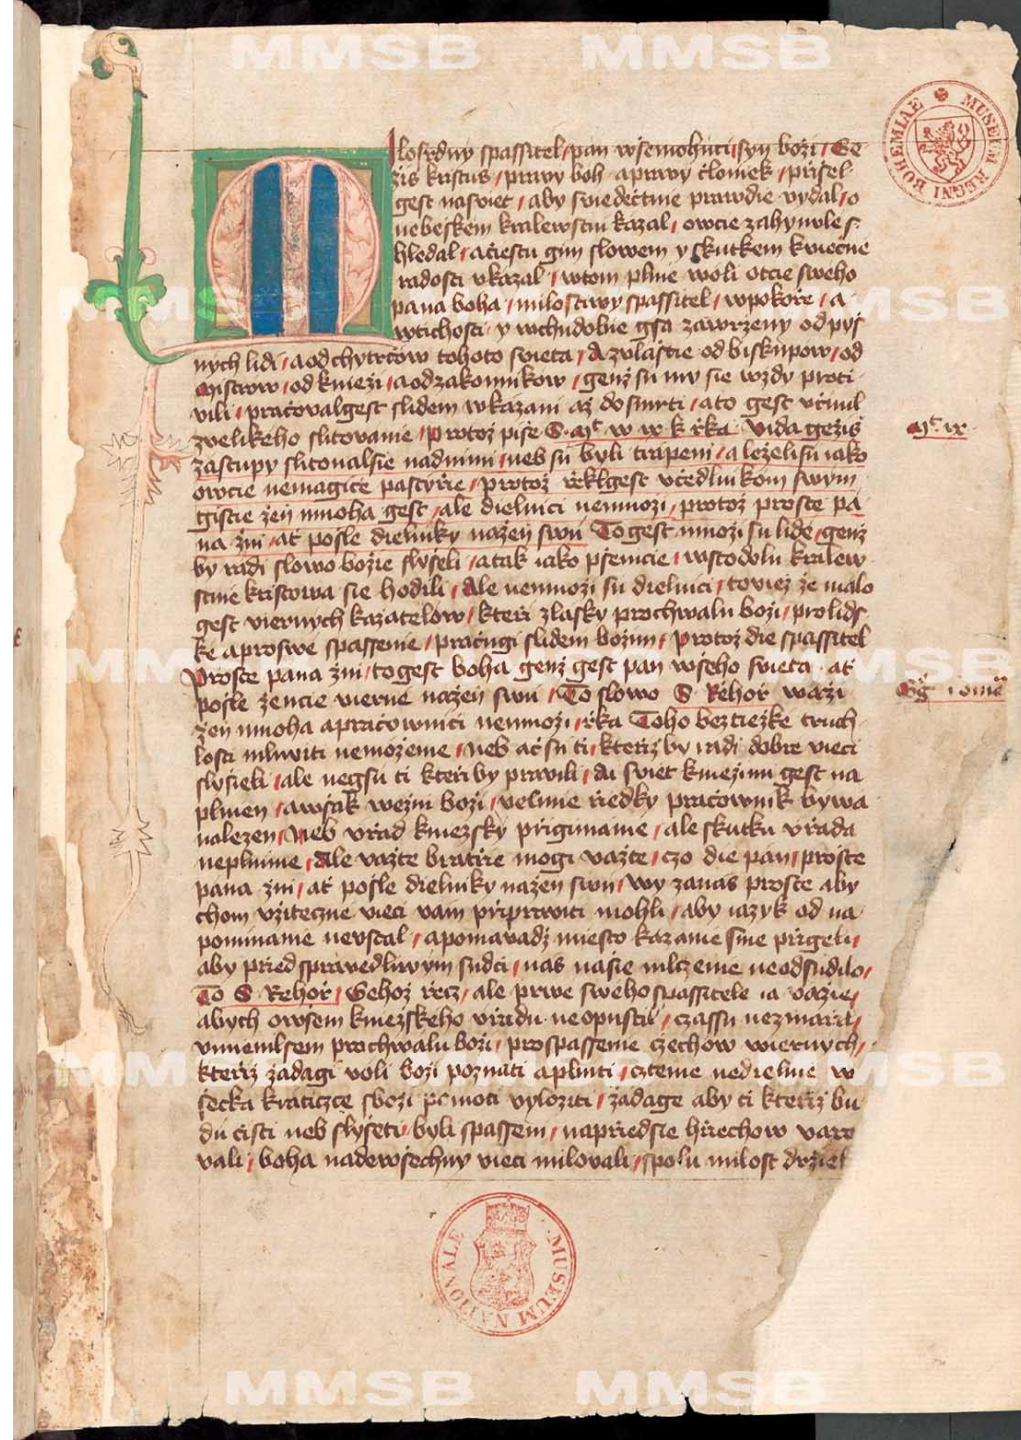 MMSB MMSB
MUSEUM REGNI BOHEMIAE
Milosrdny spassitel / pan wsemohuci / syn bozi / Ge
zis kristus / prawy boh aprawy člowiek / přisel
gest naswiet / aby swiedečtwie prawdie vydal / o
nebeskem kralewstwi kazal / owcie zahynule s
hledal / aciestu gim slowem y skutkem kwiecne
radosti vkazal / wtom plnie woli otcie sweho
pana boha / milostiwy spassitel / wpokoře / a
wtichosti y wchudobie gsa zawrzeny od pys
nych lidi / aodchytrcow tohoto swieta / A zvlastie od biskupow / od
Mistrow / od kniezi / aodzakonnikow / genz su mu sie wzdy proti
vili / pracovalgest slidem wkazani az dosmrti / ato gest včinil
zvelikeho slitowanie / protoz pise S. Mᶜ w w k řka Vida gezis
zastupy slitowalsie nadnimi / neb su byli trapeni / a lezelisu iako
owcie nemagice pastyřie / protoz řeklgest včedlnikom swym
gistie zen mnoha gest / ale dielnici nemnozi / protoz proste pa
na zni / at posle dielniky nazen swu To gest mnozi su lide / genz
by radi slowo bozie slyseli / atak iako psenicie / wstodolu kralew
stwie kristowa sie hodili / Ale nemnozi su dielnici / toviez ze malo
gest viernych kazatelow / kteri zlasky prochwalu bozi / prolids
ke aproswe spassenie / pracugi slidem bozim / protoz die spassitel
Proste pana zni / togest boha genz gest pan wseho swieta at
posle zencie vierne nazen swu / To slowo S Rehoř waži
zen mnoha apracownici nemnozi / řka Toho beztiezke truch
losti mluwiti nemozeme / neb ač su ti / kteriz by radi dobre vieci
slyseli / ale negsu ti kteriby prawili / ai swiet kniezimi gest na
plnien / awsak wezni bozi / velmie riedky pracownik bywa
nalezen / Neb vřad kniezsky přigimame / ale skutku vřada
neplnime / Ale vazte bratřie mogi vazte / czo die pan / proste
pana zni / at posle dielniky nazen swu / wy zanas proste aby
chom vzitecne vieci vam připrawiti mohli / aby iazyk od na
pominanie neustal / aponiavadz miesto kazanie sme přigeli /
aby přied sprawedliwym sudci / nas nasie mlczenie neodsudilo /
To S Rehoř / Gehoz řecz / ale prwe swehospassitele ia vazie /
abych owsem kniezskeho vřadu neopustil / czassu nezmařil /
vmienilsem prochwalu bozi / prospassenie czechow wiernych /
kteriz zadagi voli bozi poznati aplniti / cztenie nedielnie w
secka kraticzce sbozi pomoci vyloziti / zadage aby ti kteriz bu
du cisti neb slyseti / byli spasseni / napriedsie hřiechow varo
vali / boha nadewsechny vieci milovali / spolu milost drziel
Mᶜ ix
MUSEUM NATIONALE
MMSB MMSB